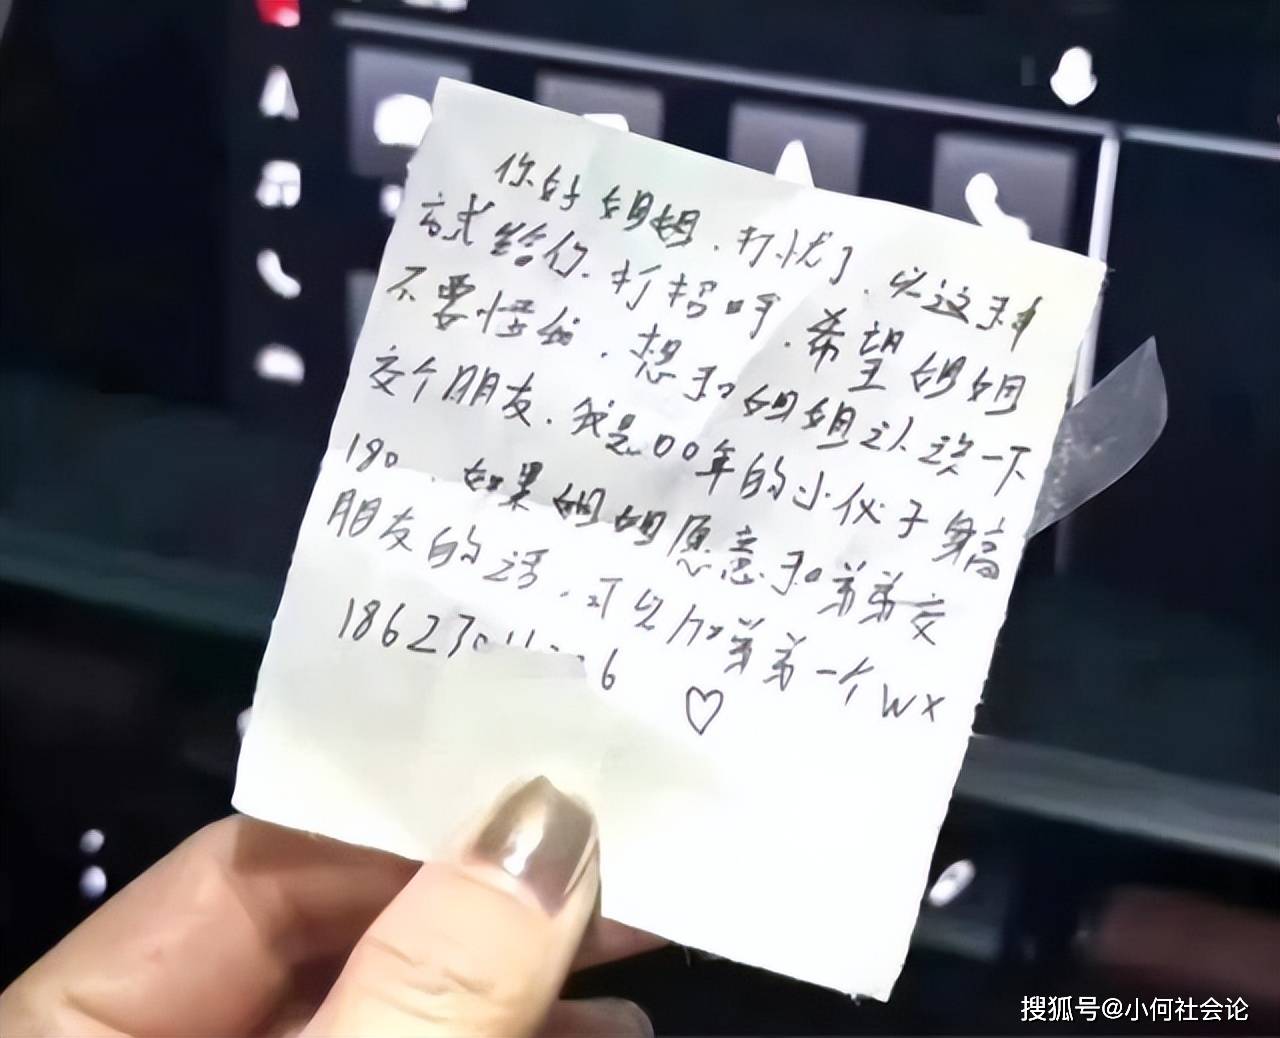 你好姐姐.打扰了.以这种
方式给你.打招呼.希望姐姐
不要惜. 想和姐姐认识一下
交个朋友.我是00年的小伙子身高
180. 如果姐姐愿意和弟弟交
朋友的话.可以加弟弟一个wx
18623 6 ♡
搜狐号@小何社会论